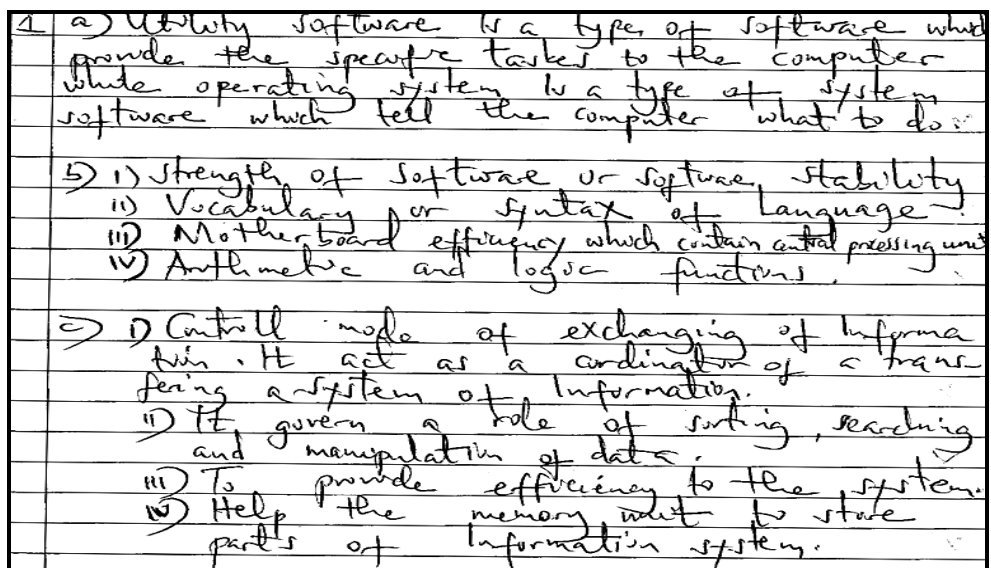 1 a) Utility software is a type of software which
provide the specific taskes to the computer
while operating system is a type of system
software which tell the computer what to do.
b) i) strength of software or software stability
ii) Vocabulary or syntax of Language.
iii) Motherboard efficiency which contain central processing unit
iv) Arithmetic and logic functions.
c) i) Controll mode of exchanging of Informa
tion. It act as a cordinator of a trans-
fering a system of Information.
ii) It govern a role of sorting, searching
and manipulation of data.
iii) To provide efficiency to the system.
iv) Help the memory unit to store
parts of Information system.